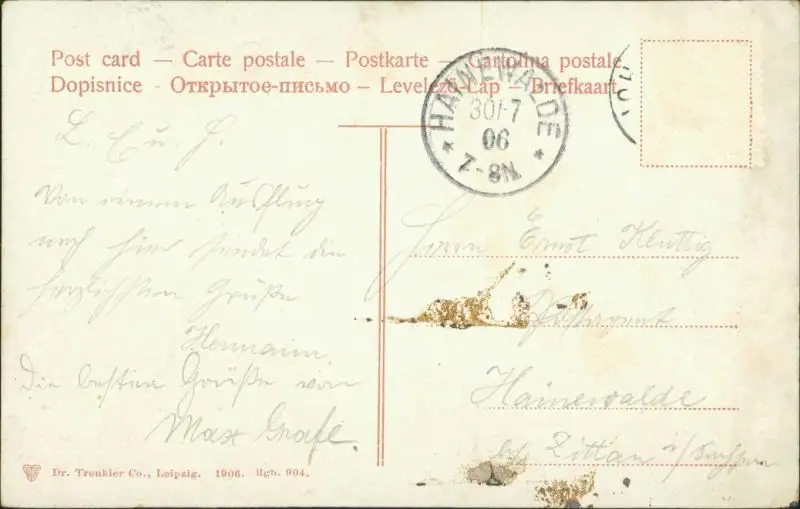 Post card — Carte postale — Postkarte — Cartolina postale
Dopisnice - Открытое-письмо — Levelező-Lap — Briefkaart
HAINEWALDE
30/-7
06
7-8N
L. E. u. G.
Von einem Ausflug
nach hier sendet die
herzlichsten Grüße
Hermann
Die besten Grüße von
Max Grafe.
Herrn Ernst Kluttig
Postagent
Hainewalde
bei Zittau i/Sachsen
Dr. Trenkler Co., Leipzig. 1906. Rgb. 904.